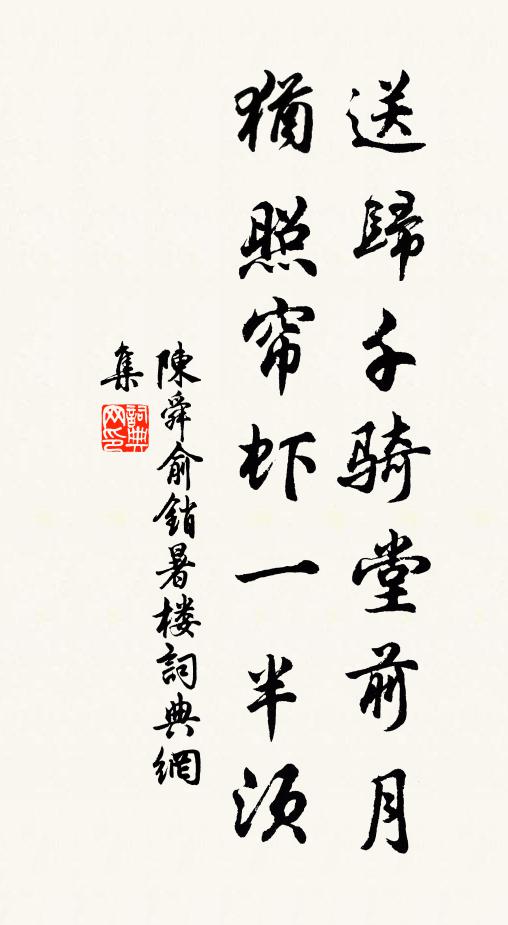 送歸千騎堂前月
猶照帘虾一半須
陳舜俞銷暑楼詞典網
集
詞典
网印